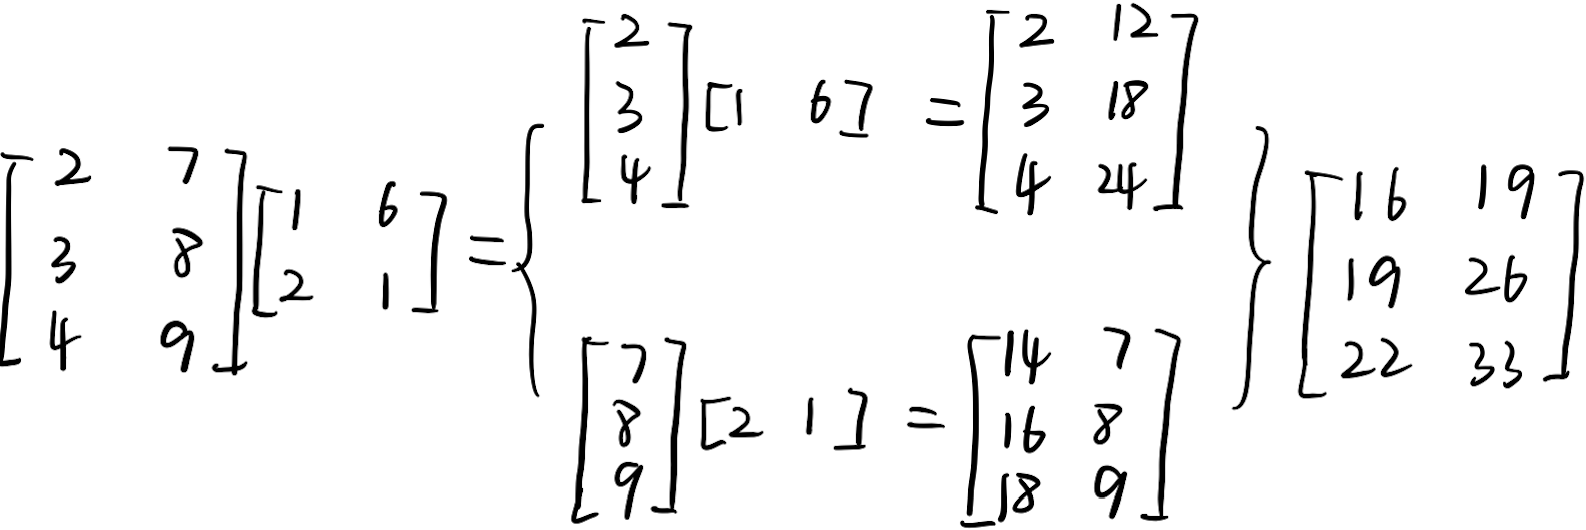 [2 7; 3 8; 4 9] [1 6; 2 1] = {
[2; 3; 4] [1 6] = [2 12; 3 18; 4 24]
[7; 8; 9] [2 1] = [14 7; 16 8; 18 9]
} [16 19; 19 26; 22 33]